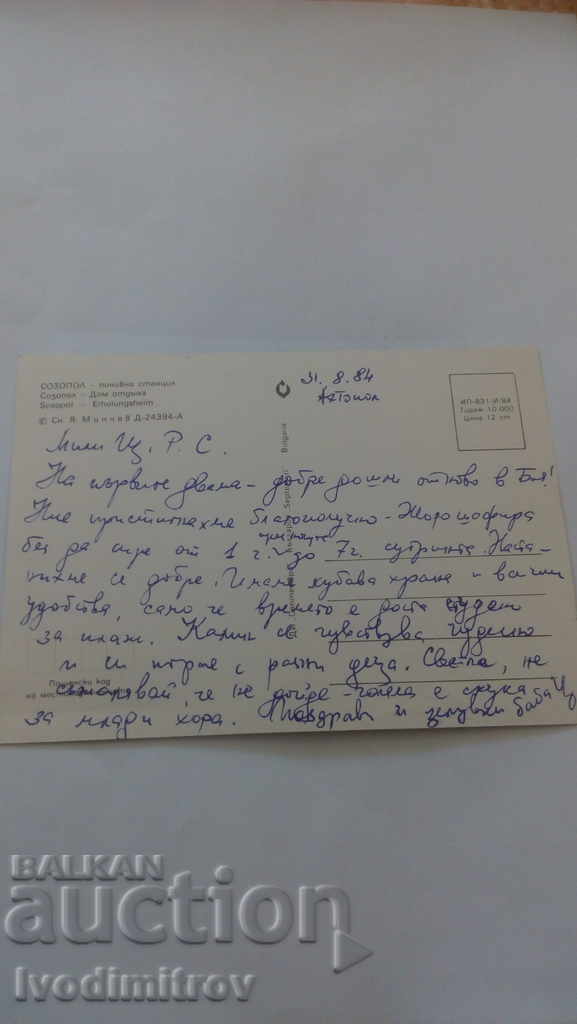 СОЗОПОЛ - почивна станция
Созопол - Дом отдыха
Sozopol - Erholungsheim
© Сн. Я. Минчев Д-24394-А
31.8.84
Ахтопол
ИП-831-И-84
Тираж 10 000
Цена 12 ст
Мили Щ. Р. С.
На първите двама - добре дошли отново в
Ние пристигнахме благополучно - Жоро шофира
без да спре от 1 ч. до 7 ч. сутринта. Наста-
нихме се добре. Имаме хубава храна и всички
удобства, само че времето е доста студено
за плаж. Калин се чувствува чудесно
и си играе с разни деца. Светла, не
съжалявай, че не дойде - тонега е скука
за млади хора. Поздрави и целувки баба
Пощенски код
Bulgaria
BALKAN
auction
Ivodimitrov